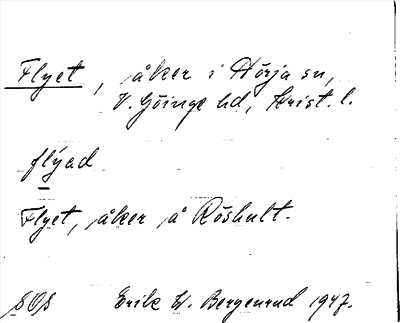 Flyet, åker i Hörja sn,
V. Göinge hd, Krist. l.
flýad
Flyet, åker å Röshult.
SOS Erik W. Bergenrud 1947.